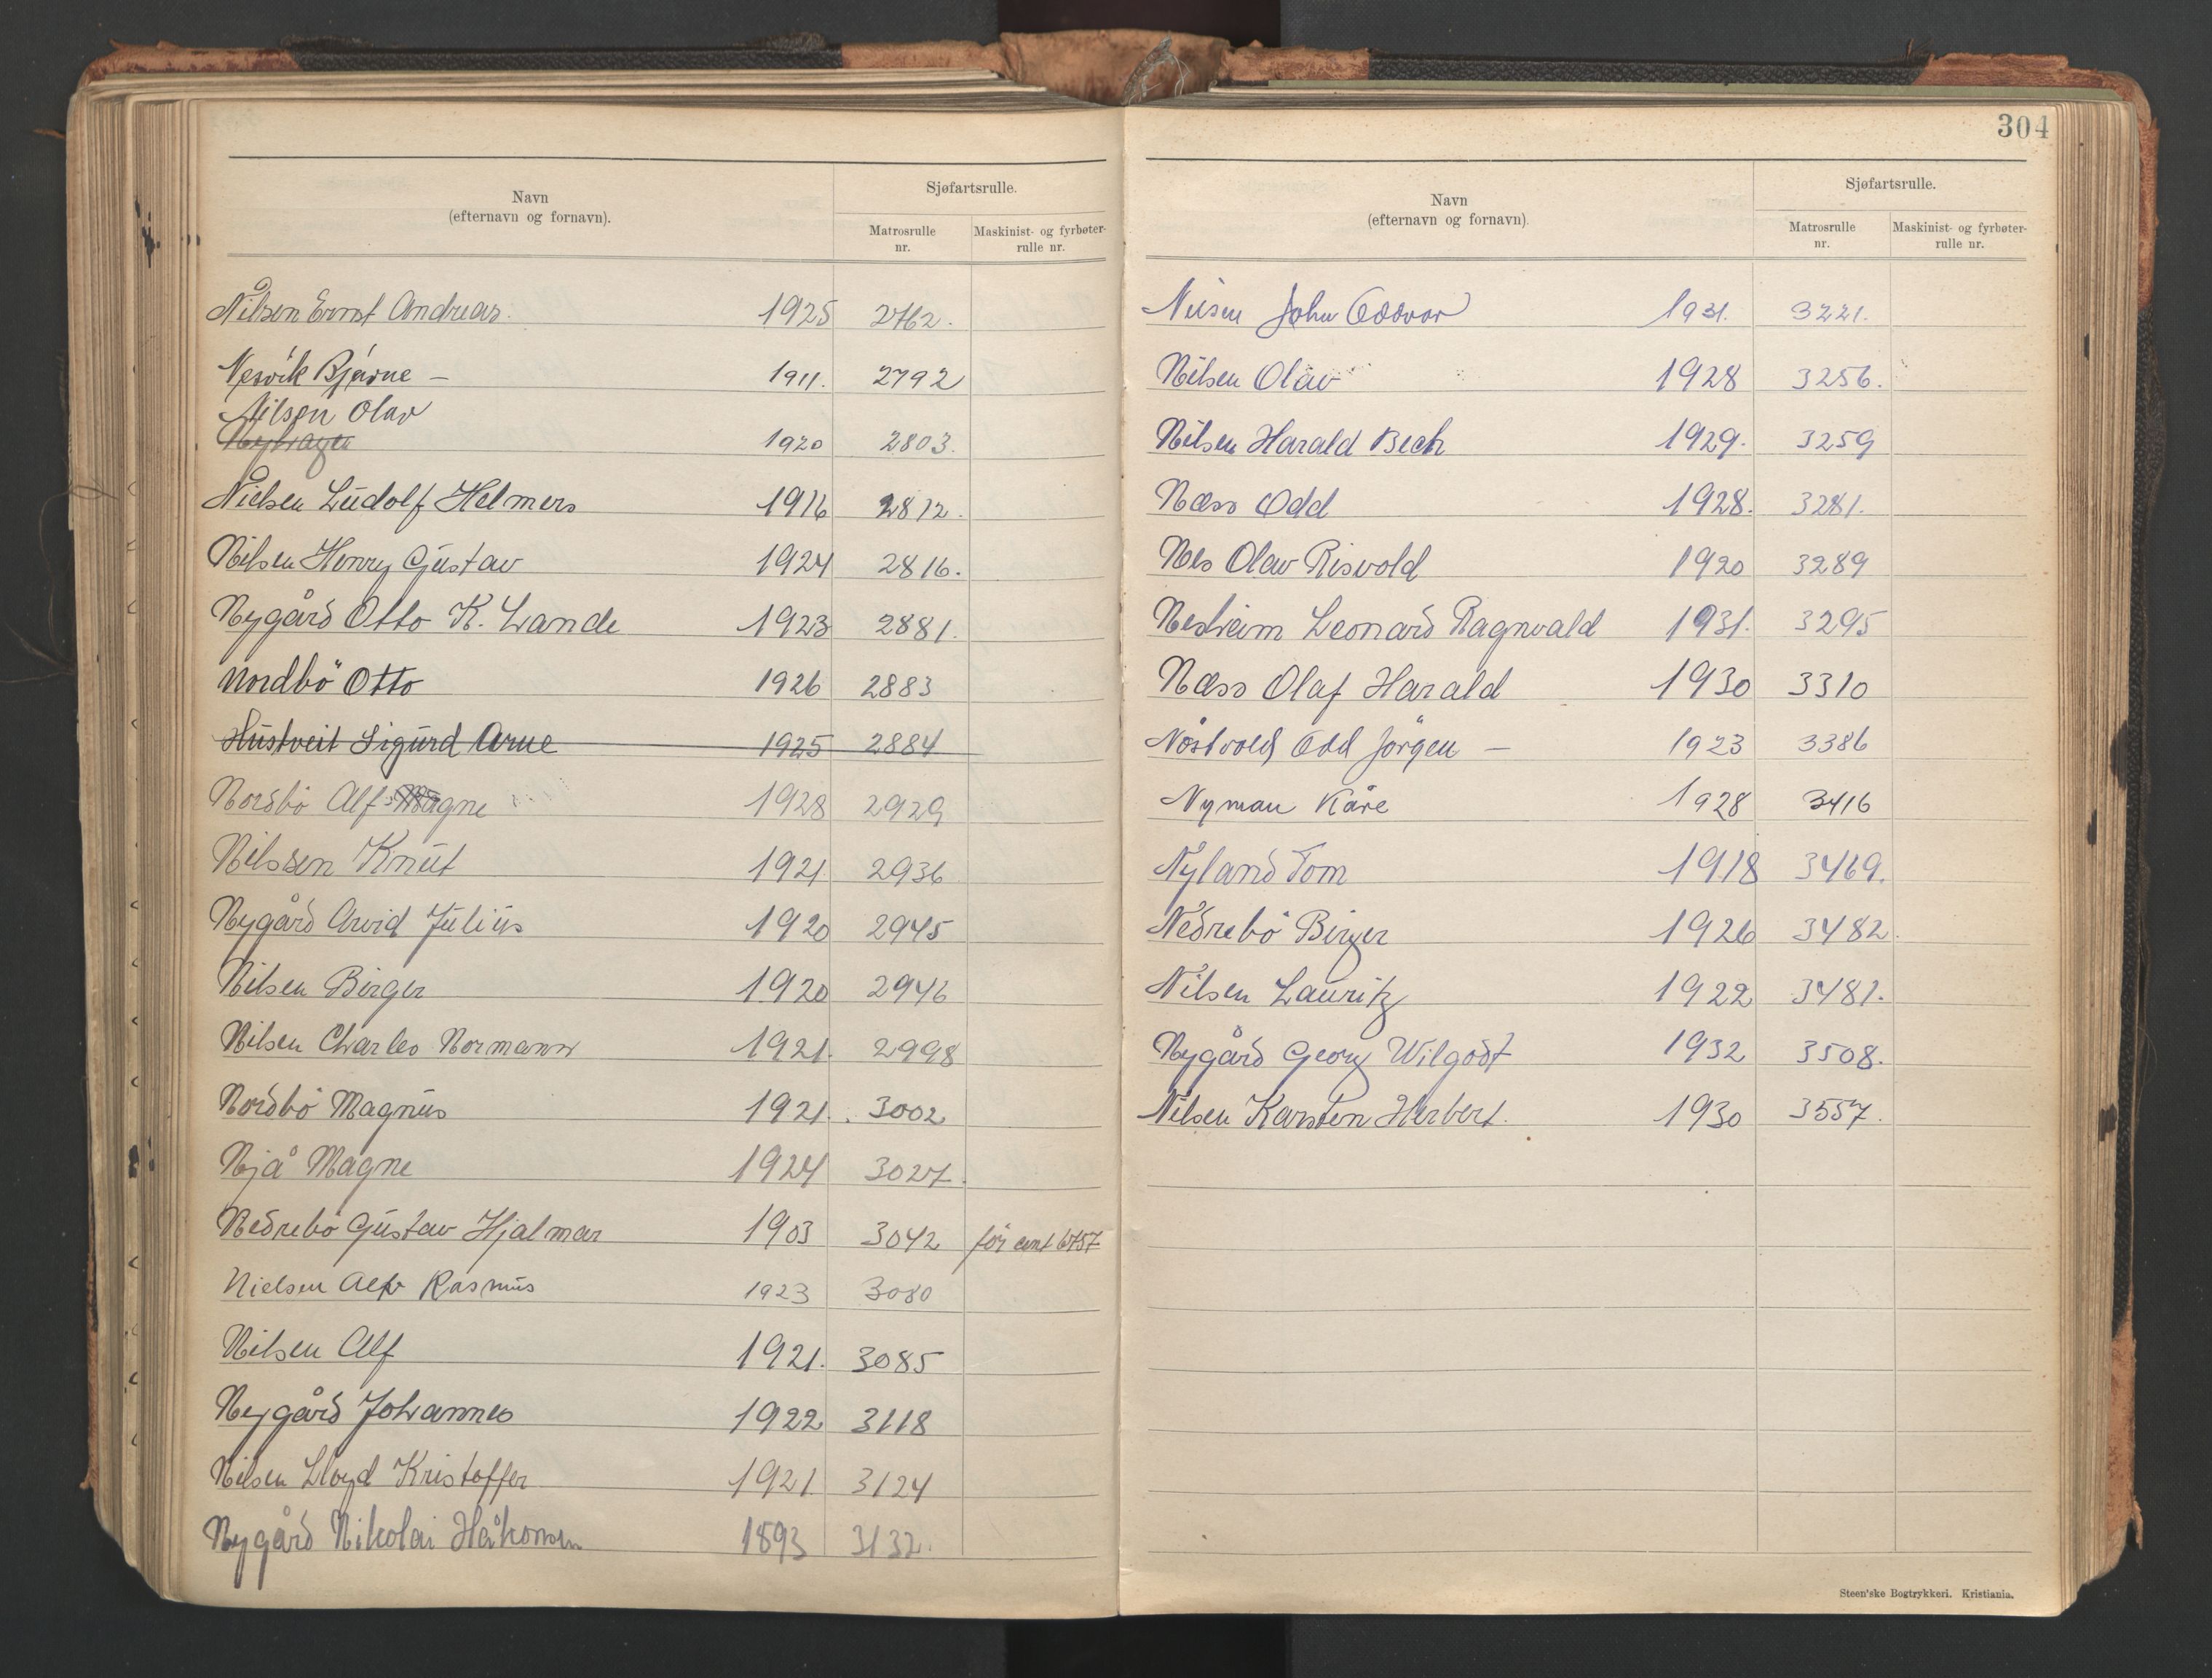 Navn
(efternavn og fornavn).
Sjøfartsrulle.
Matrosrulle nr.
Maskinist- og fyrbøter-rulle nr.
Nilsen Ernst Andreas. 1925 2762.
Nesvik Bjarne – 1911. 2792
Nilsen Olav
1920 2803.
Nielsen Ludolf Helmers 1916 2812.
Nilsen Henry Gustav 1924 2816.
Nygård Otto K. Lande 1923 2881.
Nordbö Otto 1926 2883
Hustveit Sigurd Arne 1925 2884
Nordbö Alf Magne 1928 2929
Nilssen Knut 1921 2936
Nygård Arvid Julius 1920 2945
Nilsen Birger 1920 2946
Nilsen Charles Normann 1921. 2998
Nordbö Magnus 1921. 3002
Njå Magne 1924 3027.
Nedrebö Gustav Hjalmar 1903 3042
Nielsen Alf Rasmus 1923 3080
Nilsen Alf 1921. 3085
Nygård Johannes 1922 3118
Nilsen Lloyd Kristoffer 1921 3124
Nygård Nikolai Håkonsen 1893 3132.
304
Navn
(efternavn og fornavn).
Sjøfartsrulle.
Matrosrulle nr.
Maskinist- og fyrbøter-rulle nr.
Nilsen John Oddvar 1931. 3221.
Nilsen Olav 1928 3256.
Nilsen Harald Bech 1929. 3259
Næss Odd 1928. 3281.
Nes Olav Risvold 1920 3289
Nesheim Leonard Ragnvald 1931. 3295
Næss Olaf Harald 1930 3310
Nöstvold Odd Jörgen – 1923 3386
Nyman Kåre 1928 3416
Nyland Tom 1918 3469.
Nedrebö Birger 1926 3482.
Nilsen Lauritz 1922 3481.
Nygård Georg Wilgodt 1932 3508.
Nilsen Karsten Herbert. 1930 3557.
Steen'ske Bogtrykkeri. Kristiania.